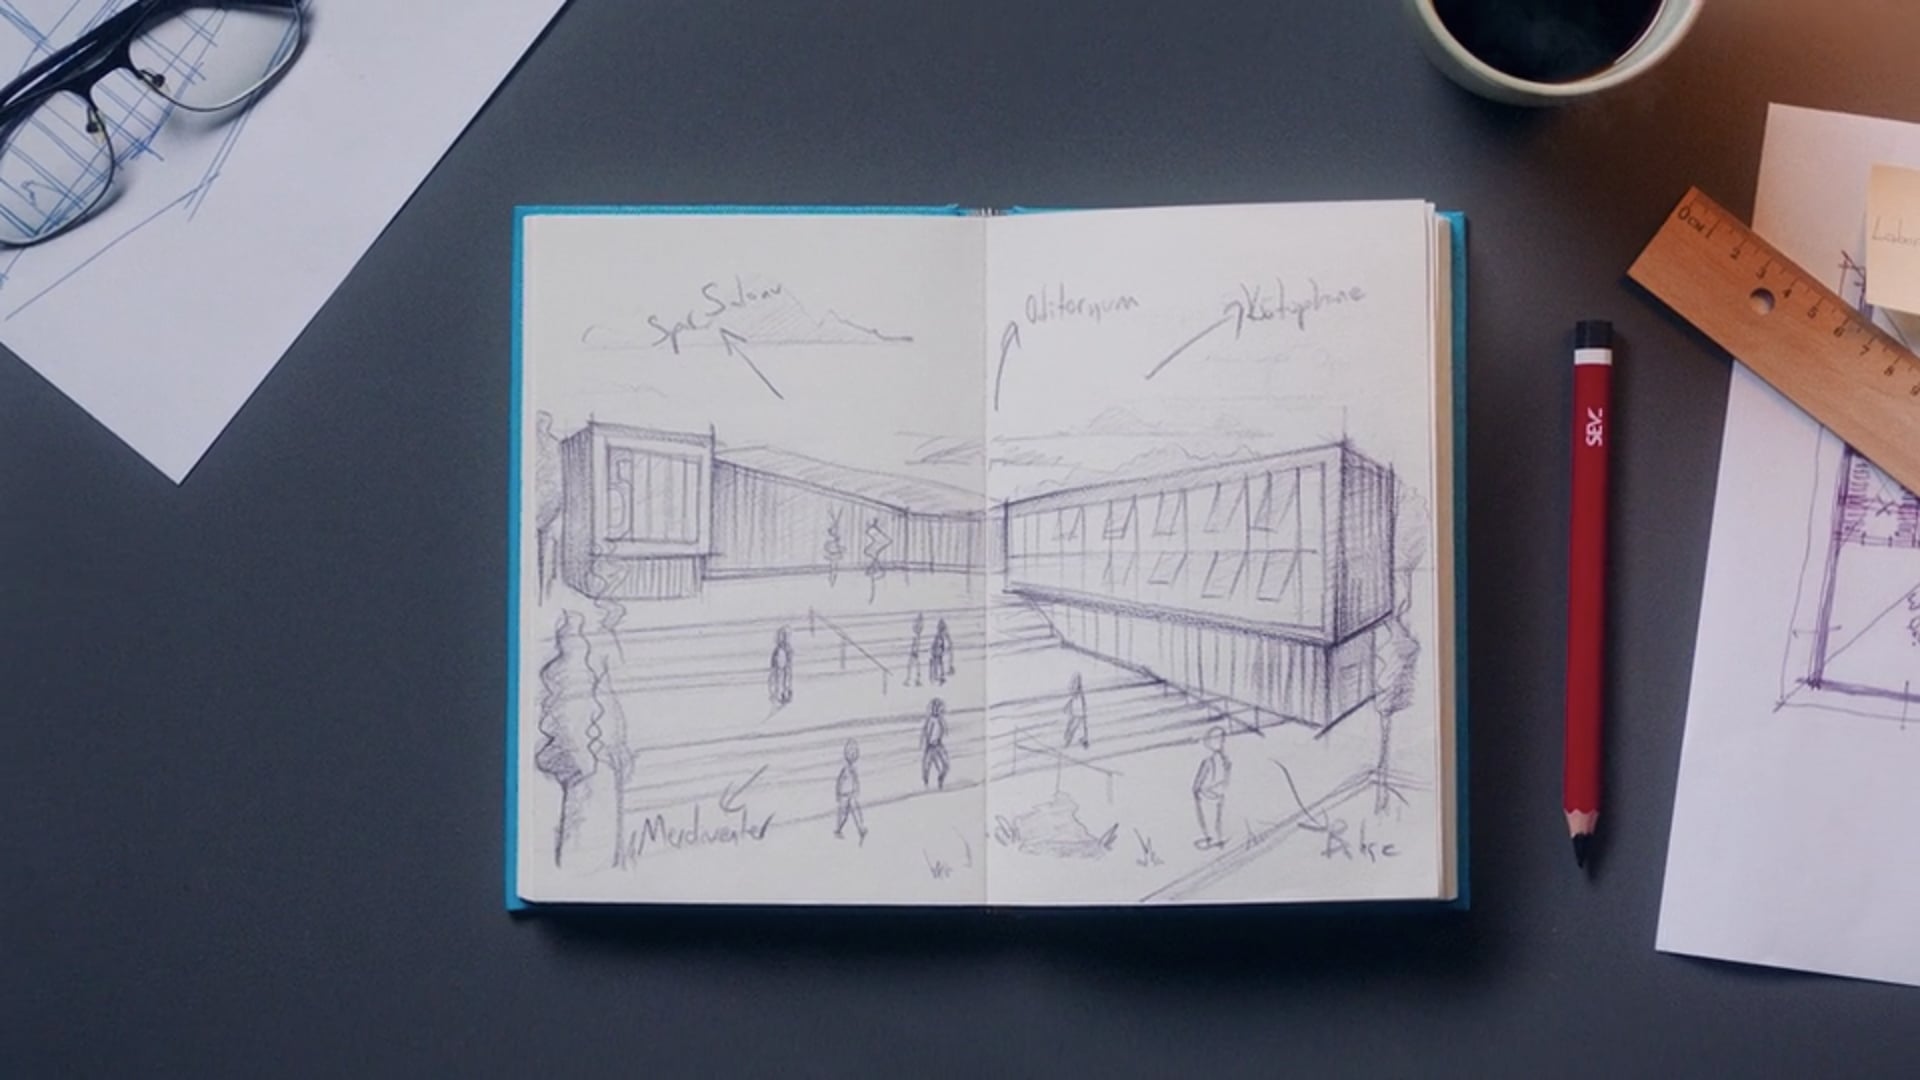 Spor Salonu
Oditoryum
Kütüphane
Merdivenler
Bahçe
SEV
0CM 1 2 3 4 5 6 7 8 9
Labor